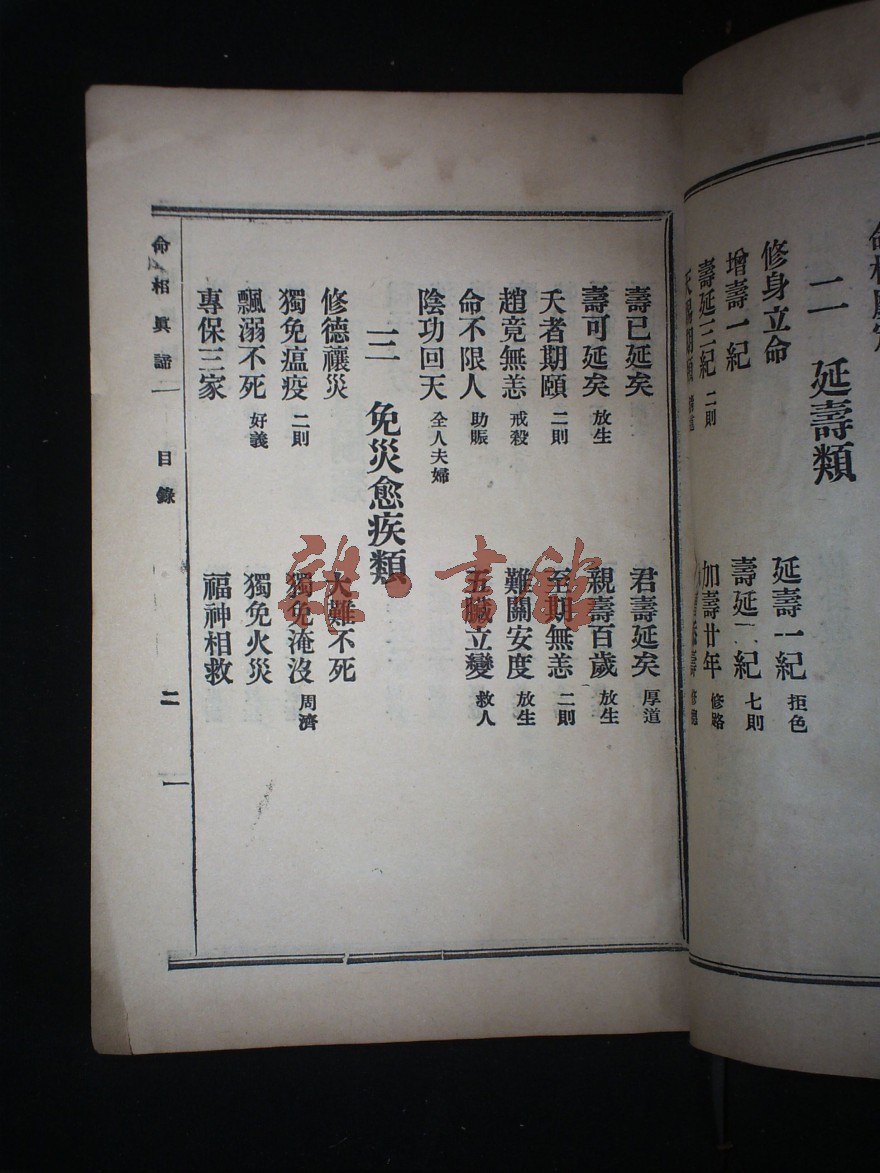 二　延壽類
修身立命　延壽一紀 拒色
增壽一紀　壽延 紀 七則
壽延三紀 二則　加壽廿年 修路
壽已延矣　君壽延矣 厚道
壽可延矣 放生　親壽百歲 放生
夭者期頤 二則　至期無恙 二則
趙竞無恙 戒殺　難關安度 放生
命不限人 助賑　五臟立變 救人
陰功回天 全人夫婦
三　免災愈疾類
修德禳災　大難不死
獨免瘟疫 二則　獨免淹沒 周濟
飄溺不死 好義　獨免火災
專保三家　福神相救
命相眞諦　目錄　二
雜·書館